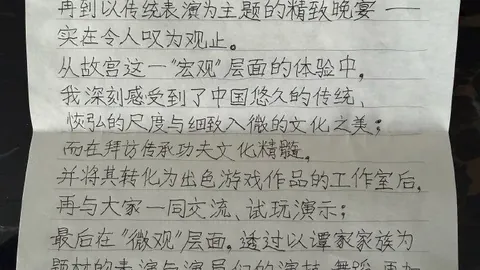 再到以传统表演为主题的精致晚宴 ——
实在令人叹为观止。
从故宫这一"宏观"层面的体验中，
我深刻感受到了中国悠久的传统、
恢弘的尺度与细致入微的文化之美；
而在拜访传承功夫文化精髓，
并将其转化为出色游戏作品的工作室后，
再与大家一同交流、试玩演示；
最后在"微观"层面，透过以谭家家族为
题材的表演与演员们的演技、舞蹈、再加